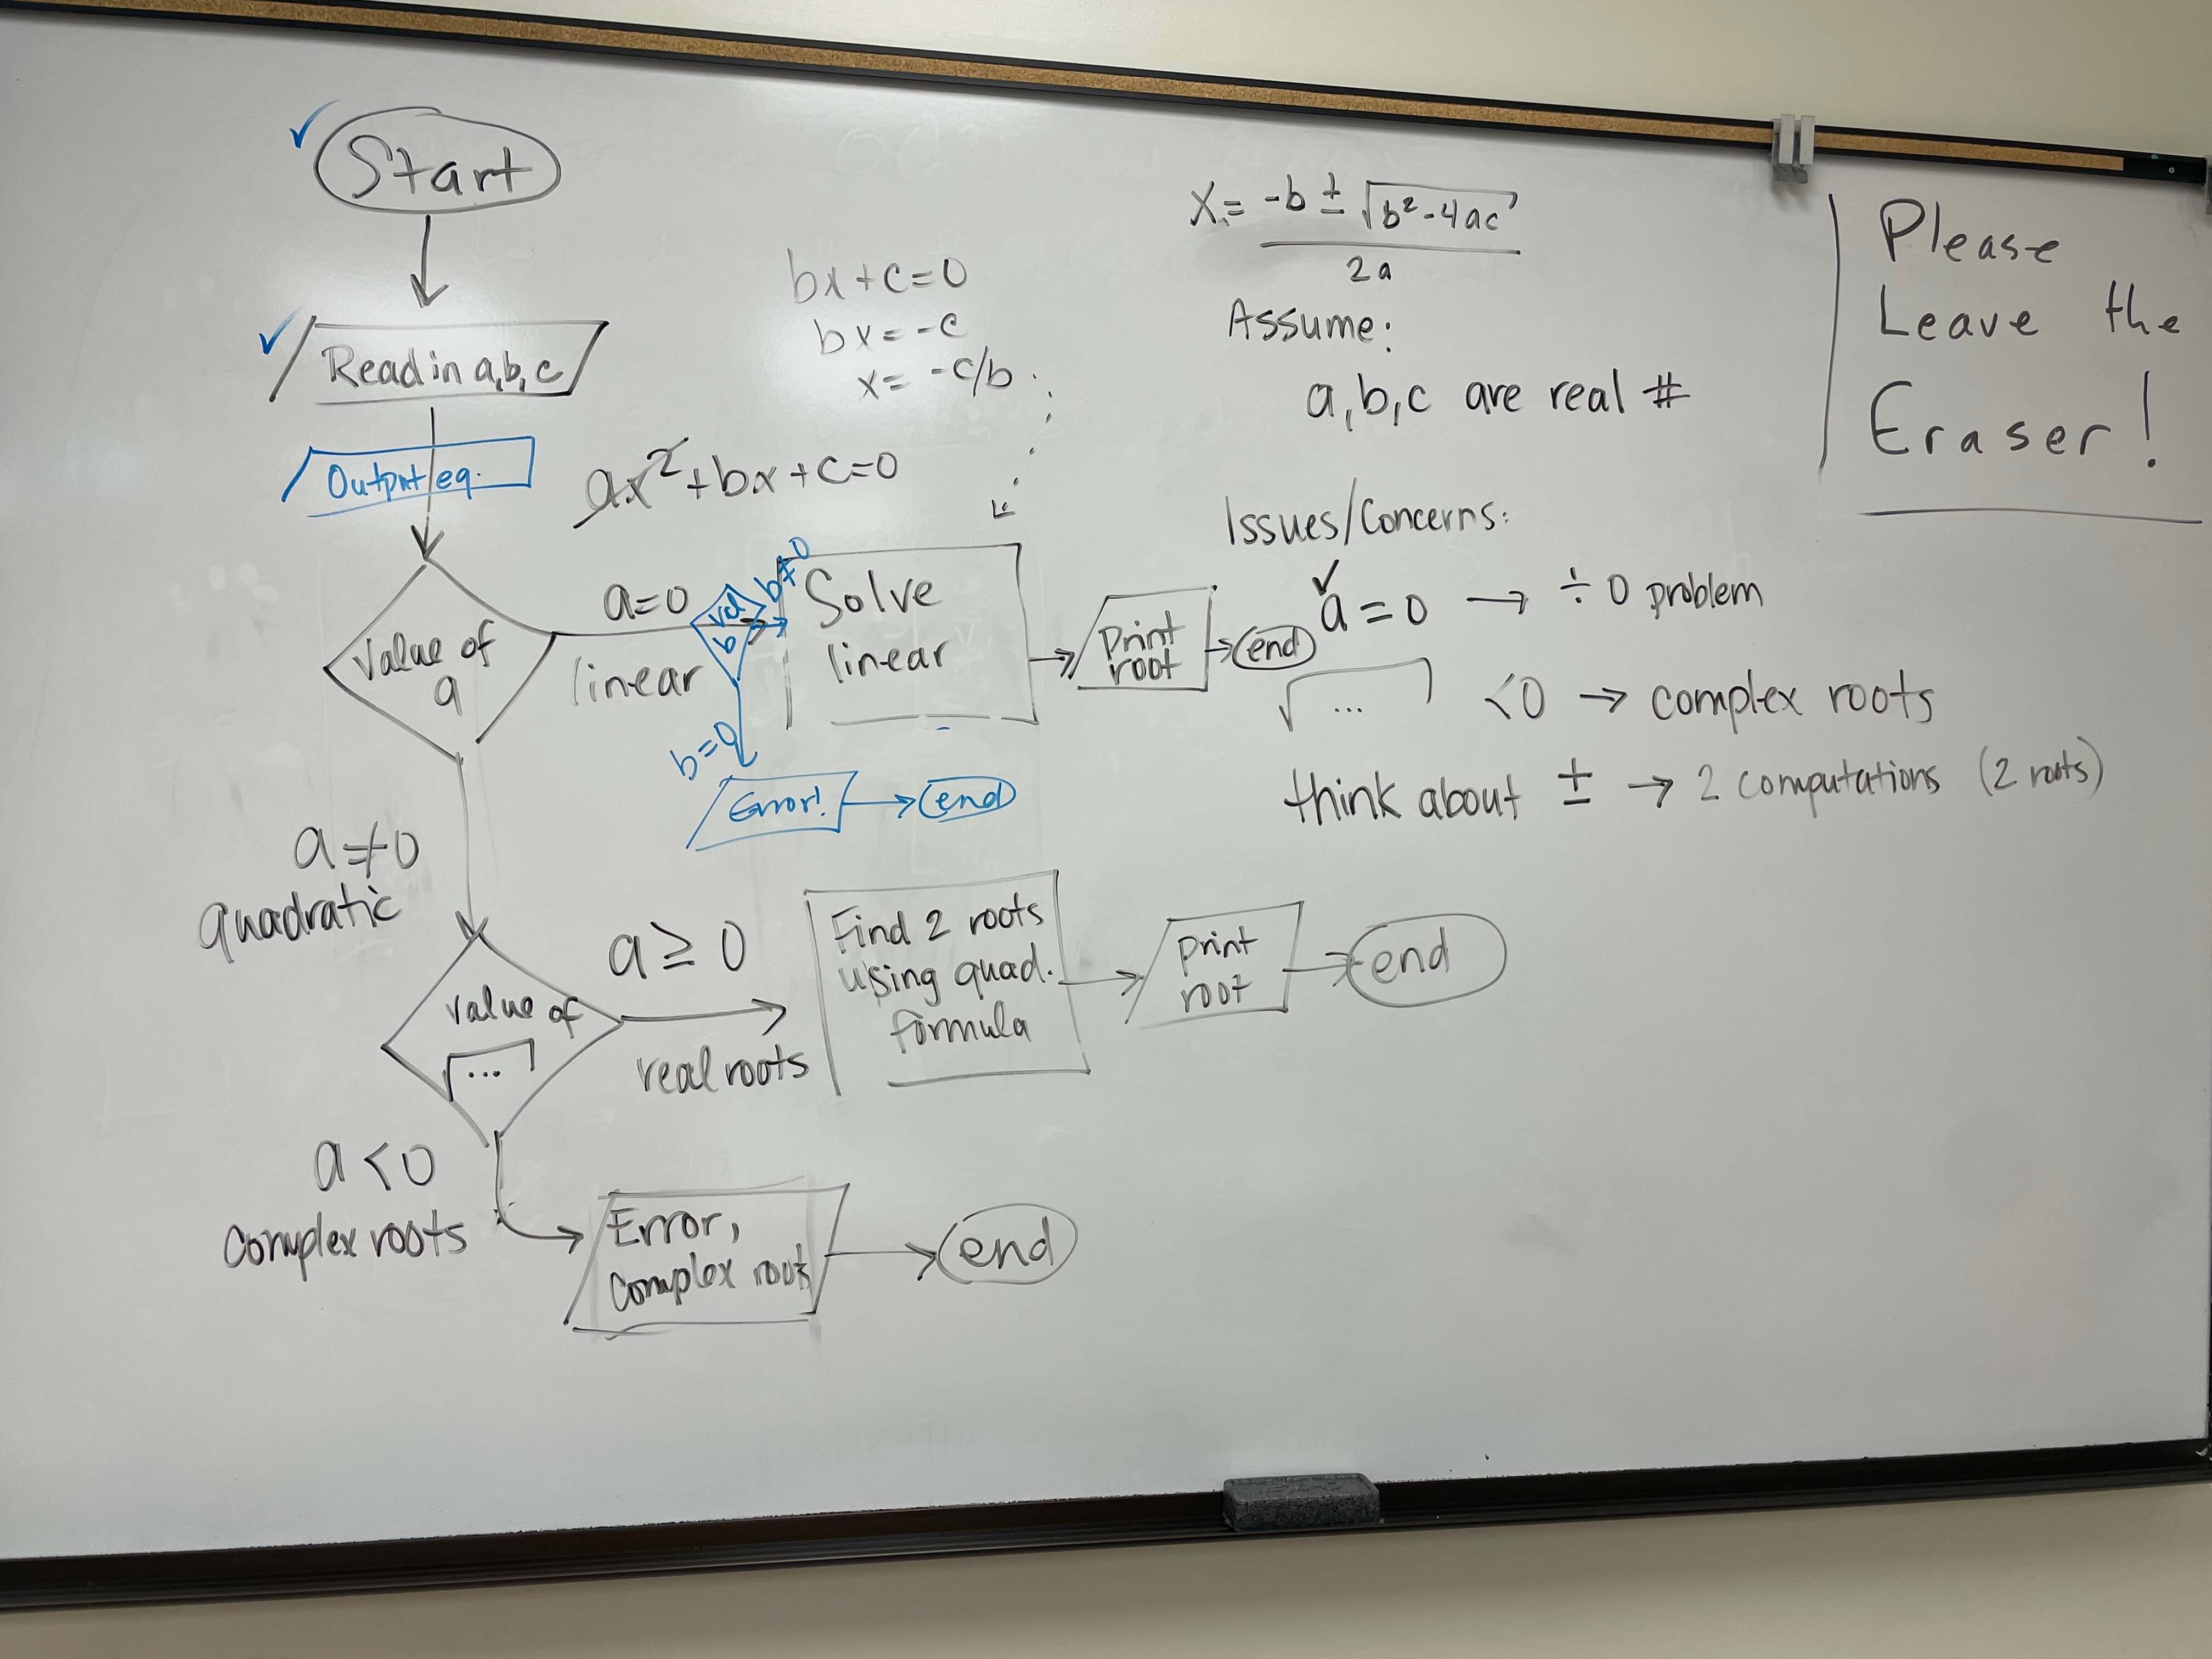 ✓ Start
✓ Read in a,b,c
Output eq.
Value of
a
a=0
linear
val
b
b≠0
b=0
Error!
end
Solve
linear
print
root
end
bx+c=0
bx=-c
x= -c/b
ax²+bx+c=0
a≠0
quadratic
value of
√...
a ≥ 0
real roots
Find 2 roots
using quad.
formula
print
root
end
a<0
complex roots
Error,
complex roots
end
X= -b ± √b²-4ac
2a
Assume:
a,b,c are real #
Issues/Concerns:
✓
a = 0 → ÷ 0 problem
√... <0 → complex roots
think about ± → 2 computations (2 roots)
Please
Leave the
Eraser!